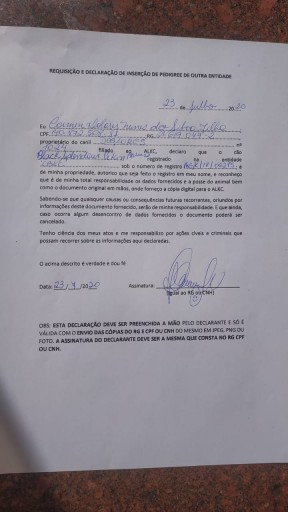 REQUISIÇÃO E DECLARAÇÃO DE INSERÇÃO DE PEDIGREE DE OUTRA ENTIDADE
23 de Julho 2020
Eu
CPF RG
proprietário do canil nº
filiado ao ALKC, declaro que o cão
registrado na entidade
sob o número de registro é
de minha propriedade, autorizo que seja feito o registro em meu nome, e reconheço
que é de minha total responsabilidade os dados fornecidos e a posse do animal bem
como o documento original em mãos, onde forneço a cópia digital para o ALKC.
Sabendo-se que quaisquer causas ou consequências futuras recorrentes, oriundas por
informações deste documento fornecido, serão de minha responsabilidade. E que ainda,
caso ocorra algum desencontro de dados fornecidos o documento poderá ser
cancelado.
Tenho ciência dos meus atos e me responsabilizo por ações cíveis e criminais que
possam recorrer sobre as informações aqui declaradas.
O acima descrito é verdade e dou fé
Data: 23/ /2020 Assinatura:
(Igual ao RG ou CNH)
OBS: ESTA DECLARAÇÃO DEVE SER PREENCHIDA A MÃO PELO DECLARANTE E SÓ É
VÁLIDA COM O ENVIO DAS CÓPIAS DO RG E CPF OU CNH DO MESMO EM JPEG, PNG OU
FOTO. A ASSINATURA DO DECLARANTE DEVE SER A MESMA QUE CONSTA NO RG CPF
OU CNH.